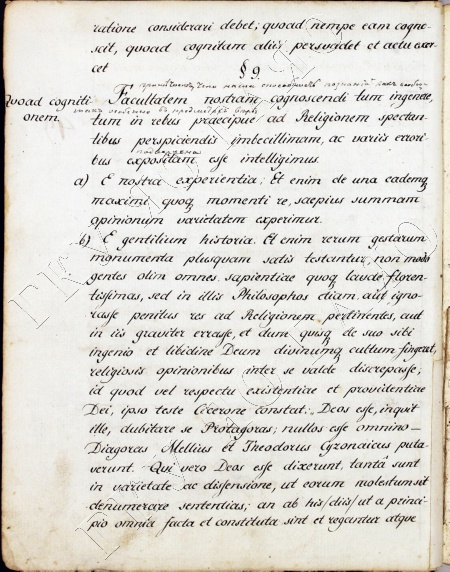 ratione considerari debet; quoad nempe eam cogno-
scit, quoad cognitam aliis persvadet et actu exer-
cet
§ 9.
Quoad cogniti-
onem.
Facultatem nostram cognoscendi tum in genere,
tum in rebus praecipue ad Religionem spectan-
tibus perspiciendis imbecillimam, ac variis errori
подвержена
bus expositam esse intelligimus.
a) E nostra experientia; Et enim de una eademq
maximi quoq momenti re, saepius summam
opinionum varietatem experimur.
b) E gentilium historia. Et enim rerum gestarum
monumenta plusquam satis testantur, non modo
gentes olim omnes sapientiae quoq laude floren-
tissimas, sed in illis Philosophos etiam aut igno-
rasse penitus res ad Religionem pertinentes, aut
in iis graviter errasse, et dum quisq de suo sibi
ingenio et libidine Deum divinumq cultum fingerat,
religiosis opinionibus inter se valde discrepasse;
id quod vel respectu existentiae et providentiae
Dei, ipso teste Cicerone constat. Deos esse, inquit
ille, dubitare se Protagoras; nullos esse omnino
Diagoras Mellius et Theodorus Cyronaicus puta
verunt. Qui vero Deos esse dixerunt, tanta sunt
in varietate ac dissensione, ut eorum molestum sit
denumerare sententias; an ab his /diis/ ut a princi-
pio omnia facta et constituta sint et regantur atque